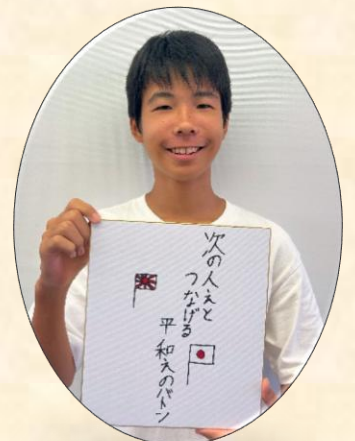 次の人えと
つなげる
平和えのバトン